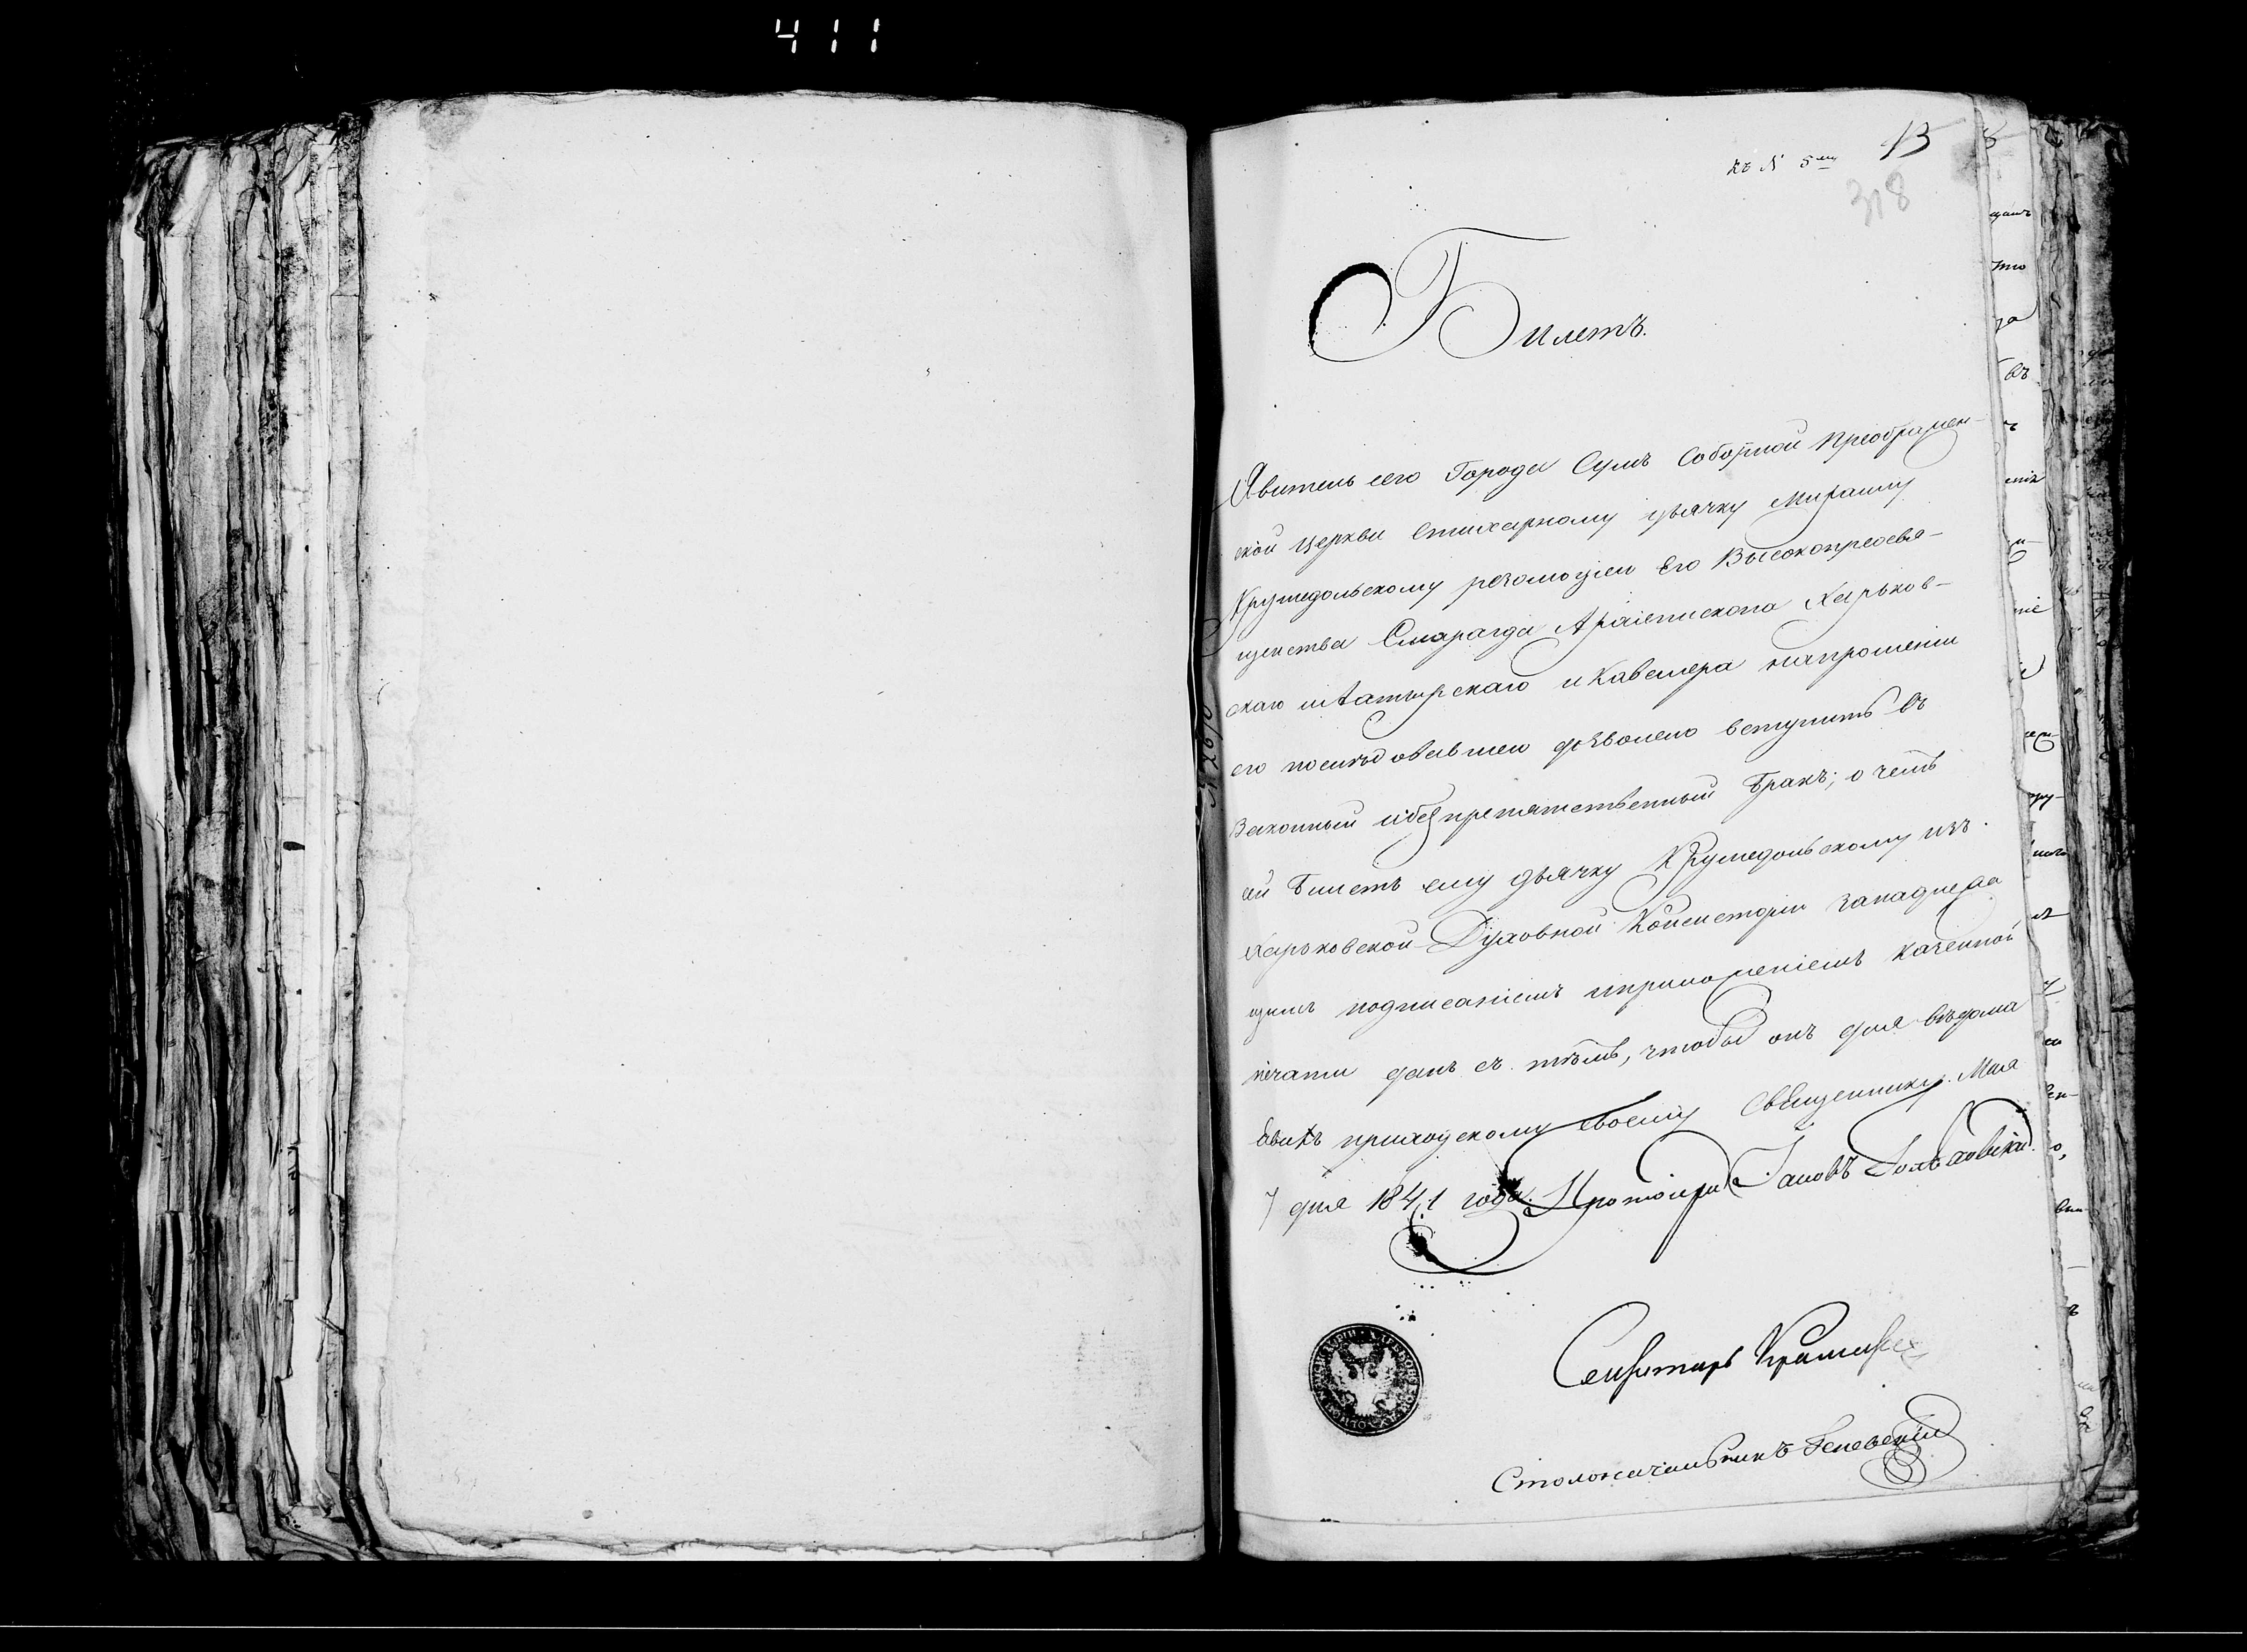 411
къ № 5му 13
318
Билетъ.
Явитель сего Города Сумъ Соборной Преображен-
ской церкви стихарному дьячку
Крушедольскому резолюціею Его Высокопреосвя-
щенства Смарагда Архіепископа Харьков-
скаго иАхтырскаго и Кавалера напрошеніи
его послѣдовавшею дозволено вступить въ
Законный ибезпрепятственный Бракъ; о чемъ
сей Билетъ ему дьячку Крушедольскому изъ
Харьковской Духовной Консисторіи занадлежа
щимъ подписаніемъ иприложеніемъ казенной
печати данъ съ тѣмъ, чтобы онъ для вѣдома
явилъ приходскому своему Священнику. Мая
7 дня 1841 года. Протоіерей Іаковъ
Секретарь
Столоначальникъ